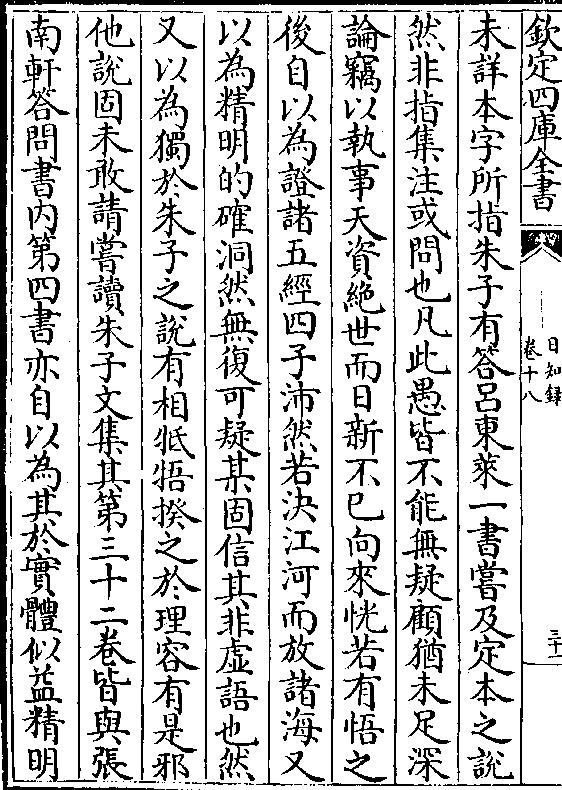 欽定四庫全書
日知錄
卷十八
三十一
未詳本字所指朱子有答呂東萊一書嘗及定本之說
然非指集注或問也凡此愚皆不能無疑顧猶未足深
論竊以執事天資絶世而日新不已向來恍若有悟之
後自以為證諸五經四子沛然若決江河而放諸海又
以為精明的確洞然無復可疑某固信其非虛語也然
又以為獨於朱子之說有相牴牾揆之於理容有是邪
他說固未敢請嘗讀朱子文集其第三十二卷皆與張
南軒答問書内第四書亦自以為其於實體似益精明